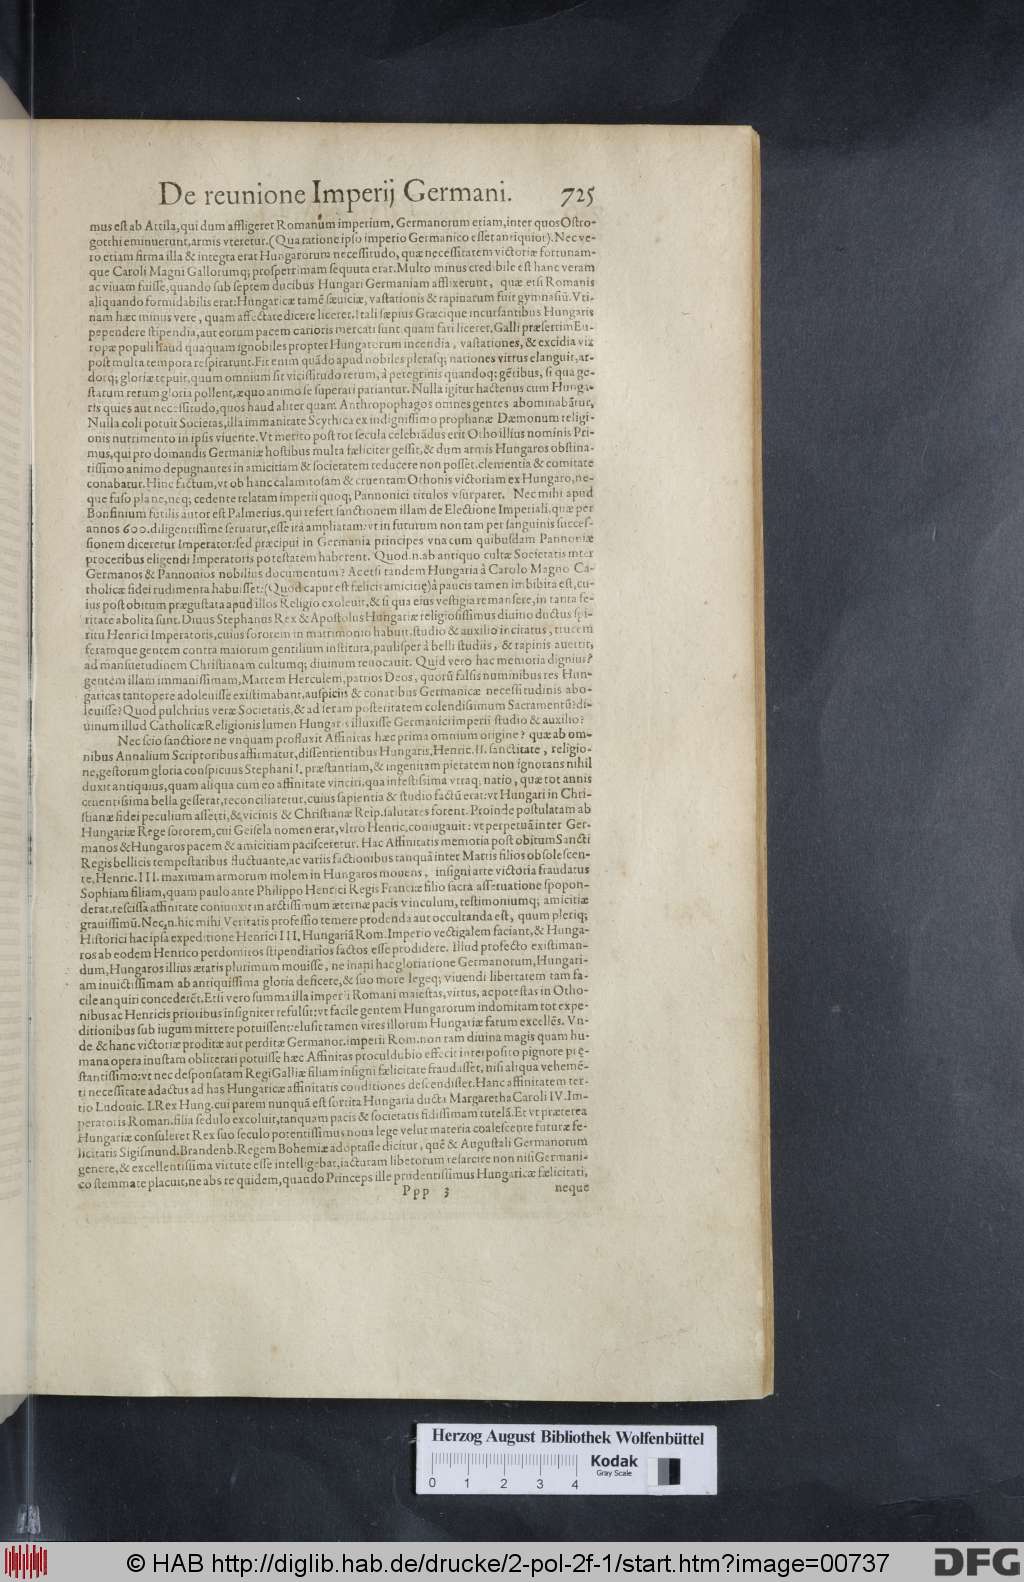 De reunione Imperij Germani. 725
mus est ab Attila, qui dum affligeret Romanum imperium, Germanorum etiam, inter quos Ostro-
gotthi eminuerunt, armis vteretur. (Qua ratione ipso imperio Germanico esset antiquior). Nec ve-
ro etiam firma illa & integra erat Hungarorum necessitudo, quæ necessitatem victoriæ fortunam-
que Caroli Magni Gallorumq; prosperrimam sequuta erat. Multo minus credibile est hanc veram
ac viuam fuisse, quando sub septem ducibus Hungari Germaniam afflixerunt, quæ etsi Romanis
aliquando formidabilis erat: Hungaricæ tamē sæuiciæ, vastationis & rapinarum fuit gymnasiū. Vti-
nam hæc minus vere, quam affectate dicere liceret. Itali sæpius Græcique incursantibus Hungaris
pependere stipendia, aut eorum pacem carioris mercati sunt, quam fari liceret. Galli præsertim Eu-
ropæ populi haud quaquam ignobiles propter Hungarorum incendia, vastationes, & excidia vix
post multa tempora respirarunt. Fit enim quādo apud nobiles plerasq; nationes virtus elanguit, ar-
dorq; gloriæ tepuit, quum omnium sit vicissitudo rerum, à peregrinis quandoq; gētibus, si qua ge-
starum rerum gloria pollent, æquo animo se superari patiantur. Nulla igitur hactenus cum Hunga-
ris quies aut necessitudo, quos haud aliter quam Anthropophagos omnes gentes abominabātur,
Nulla coli potuit Societas, illa immanitate Scythica ex indignissimo prophanæ Dæmonum religi-
onis nutrimento in ipsis viuente. Vt merito post tot secula celebrādus erit Otho illius nominis Pri-
mus, qui pro domandis Germaniæ hostibus multa fæliciter gessit, & dum armis Hungaros obstina-
tissimo animo depugnantes in amicitiam & societatem reducere non posset, clementia & comitate
conabatur. Hinc factum, vt ob hanc calamitosam & cruentam Othonis victoriam ex Hungaro, ne-
que fuso plane, neq; cedente relatam imperii quoq; Pannonici titulos vsurparet. Nec mihi apud
Bonfinium futilis autor est Palmerius, qui refert sanctionem illam de Electione Imperiali, quæ per
annos 600. diligentissime seruatur, esse ita ampliatam: vt in futurum non tam per sanguinis succes-
sionem diceretur Imperator: sed præcipui in Germania principes vna cum quibusdam Pannoniæ
proceribus eligendi Imperatoris potestatem haberent. Quod. n. ab antiquo cultæ Societatis inter
Germanos & Pannonios nobilius documentum? Accesi tandem Hungaria à Carolo Magno Ca-
tholicæ fidei rudimenta habuisset: (Quod caput est fælicis amicitię) à paucis tamen imbibita est, cu-
ius post obitum prægustata apud illos Religio exoleuit, & si qua eius vestigia remansere, in tanta fe-
ritate abolita sunt. Diuus Stephanus Rex & Apostolus Hungariæ religiosissimus diuino ductus spi-
ritu Henrici Imperatoris, cuius sororem in matrimonio habuit, studio & auxilio incitatus, trucem
feramque gentem contra maiorum gentilium instituta, paulisper à belli studiis, & rapinis auertit,
ad mansuetudinem Christianam cultumq; diuinum reuocauit. Quid vero hac memoria dignius?
gentem illam immanissimam, Martem Herculem, patrios Deos, quorū falsis numinibus res Hun-
garicas tantopere adoleuisse existimabant, auspiciis & conatibus Germanicæ necessitudinis abo-
leuisse? Quod pulchrius veræ Societatis, & ad seram posteritatem colendissimum Sacramentū? di-
uinum illud Catholicæ Religionis lumen Hungaris illuxisse Germanici imperii studio & auxilio?
Nec scio sanctiore ne vnquam profluxit Affinitas hæc prima omnium origine? quæ ab om-
nibus Annalium Scriptoribus affirmatur, dissentientibus Hungaris, Henric. II. sanctitate, religio-
ne, gestorum gloria conspicuus Stephani I. præstantiam, & ingenitam pietatem non ignorans nihil
duxit antiquius, quam aliqua cum eo affinitate vinciri, qua infestissima vtraq; natio, quæ tot annis
cruentissima bella gesserat, reconciliaretur, cuius sapientia & studio factū erat: vt Hungari in Chri-
stianæ fidei peculium asserti, &, vicinis & Christianæ Reip. salutares forent. Proinde postulatam ab
Hungariæ Rege sororem, cui Geisela nomen erat, vltro Henric. coniugauit: vt perpetuā inter Ger-
manos & Hungaros pacem & amicitiam pacisceretur. Hac Affinitatis memoria post obitum Sancti
Regis bellicis tempestatibus fluctuante, ac variis factionibus tanquā inter Martis filios obsolescen-
te, Henric. III. maximam armorum molem in Hungaros mouens, insigni arte victoria fraudatus
Sophiam filiam, quam paulo ante Philippo Henrici Regis Franciæ filio sacra asseruatione spopon-
derat, rescissa affinitate coniunxit in arctissimum æternæ pacis vinculum, testimoniumq; amicitiæ
grauissimū. Nec, n. hic mihi Veritatis professio temere prodenda aut occultanda est, quum pleriq;
Historici hac ipsa expeditione Henrici III, Hungariā Rom. Imperio vectigalem faciant, & Hunga-
ros ab eodem Henrico perdomitos stipendiarios factos esse prodidere. Illud profecto existiman-
dum, Hungaros illius ætatis plurimum mouisse, ne inani hac gloriatione Germanorum, Hungari-
am inuictissimam ab antiquissima gloria deficere, & suo more legeq; viuendi libertatem tam fa-
cile anquiri concederēt. Etsi vero summa illa imperii Romani maiestas, virtus, ac potestas in Otho-
nibus ac Henricis prioribus insigniter refulsit: vt facile gentem Hungarorum indomitam tot expe-
ditionibus sub iugum mittere potuissent: elusit tamen vires illorum Hungariæ fatum excellēs. Vn-
de & hanc victoriæ proditæ aut perditæ Germanor. imperii Rom. non tam diuina magis quam hu-
mana opera inustam obliterari potuisse hæc Affinitas proculdubio effecit interposito pignore prę-
stantissimo: vt nec desponsatam Regi Galliæ filiam insigni fælicitate fraudasset, nisi aliqua vehemē-
ti necessitate adactus ad has Hungaricæ affinitatis conditiones descendisset. Hanc affinitatem ter-
tio Ludouic. I. Rex Hung. cui parem nunquā est sortita Hungaria ducta Margaretha Caroli IV. Im-
peratoris Roman. filia sedulo excoluit, tanquam pacis & societatis fidissimam tutelā. Et vt præterea
Hungariæ consuleret Rex suo seculo potentissimus noua lege velut materia coalescente futuræ fe-
licitatis Sigismund. Brandenb. Regem Bohemiæ adoptasse dicitur, quē & Augustali Germanorum
genere, & excellentissima virtute esse intelligebat, iacturam liberorum resarcire non nisi Germani-
co stemmate placuit, ne abs re quidem, quando Princeps ille prudentissimus Hungaricæ fælicitati,
Ppp 3 neque
Herzog August Bibliothek Wolfenbüttel
Kodak
Gray Scale
0 1 2 3 4
© HAB http://diglib.hab.de/drucke/2-pol-2f-1/start.htm?image=00737
DFG